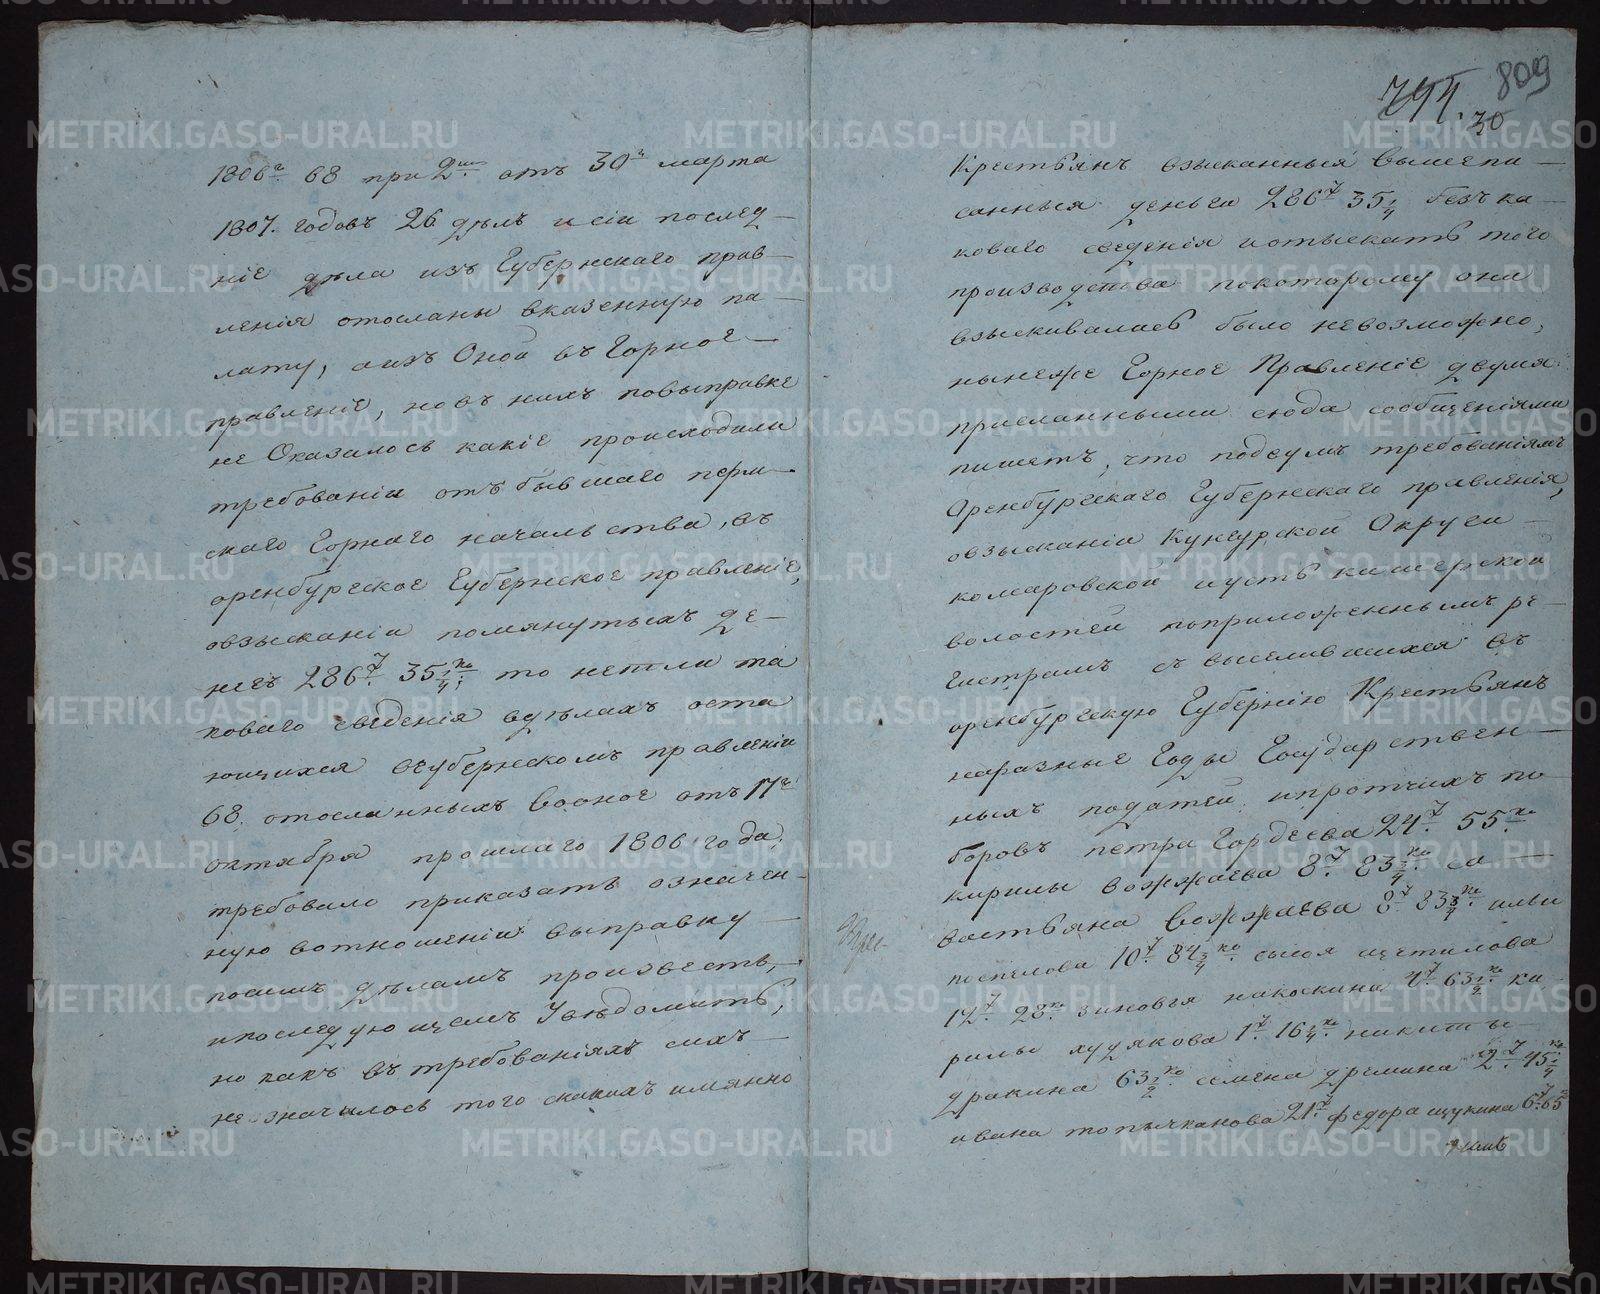 1806г. 68 при 2м. отъ 30г марта
1807. годовъ 26 дѣлъ и сіи послед-
ніе дѣла изъ Губернскаго прав-
ленія отосланы вказенную па-
лату, аизъ Оной въ Горное
правленіе, новъ нихъ повыправке
не Оказалось какіе происходили
требованіи отъ бывшаго перм-
скаго Горнаго начальства, въ
оренбургское Губернское правленіе,
овзысканіи помянутыхъ де-
негъ 286р. 35 1/4 ко. то нетли та
коваго сведенія вделахъ оста
ющихся вгубернскомъ правленіи
68. отосланныхъ Вооное отъ 17г
октября прошлаго 1806 года,
требовало приказать означен-
ную вотношеніи выправку
посимъ дѣламъ произвесть,
ипоследующемъ Увѣдомить,
но какъ въ требованіяхъ сихъ
не значилось того скакихъ имянно
794. 809
30
Крестьянъ взысканныя вышепи-
санныя деньги 286р 35 1/4 безъ ка-
коваго сведенія иотыскать того
производства покоторому они
взыскивались было невозможно,
нынеже Горное Правленіе двумя
присланными сюда сообщеніями
пишетъ, что подвумъ требованіямъ
Оренбургскаго Губернскаго правленія,
овзысканіи Кунгурской Округи
комаровской иусть кишерской
волостей поприложеннымъ ре-
гистрамъ съ выселившихся въ
оренбургскую Губернію Крестьянъ
наразные Годы Государствен-
ныхъ податей ипротчихъ по
боровъ петра Гордеева 24р. 55 ко.
кирилы вожжаева 8р. 83 3/4 ко. са
вастьяна Вожжаева 8р 83 3/4 ко. ильи
поспелова 10р. 84 3/4 ко. сысоя щетилова
12р. 28 ко зиновья накоскина 4р. 63 1/2 ко. ки
рилы худякова 1р. 16 1/4 ко. никиты
дракина 63 1/2 ко. семена дремина 2р. 45 1/4 ко
ивана топычканова 21р. федора щукина 6р. 65
METRIKI.GASO-URAL.RU